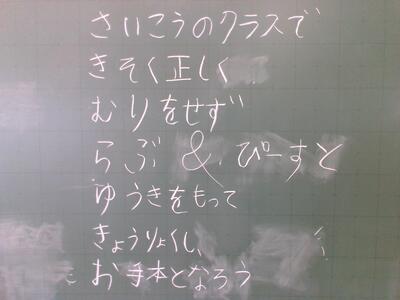 さいこうのクラスで
きそく正しく
むりをせず
らぶ&ぴーすと
ゆうきをもって
きょうりょくし、
お手本となろう